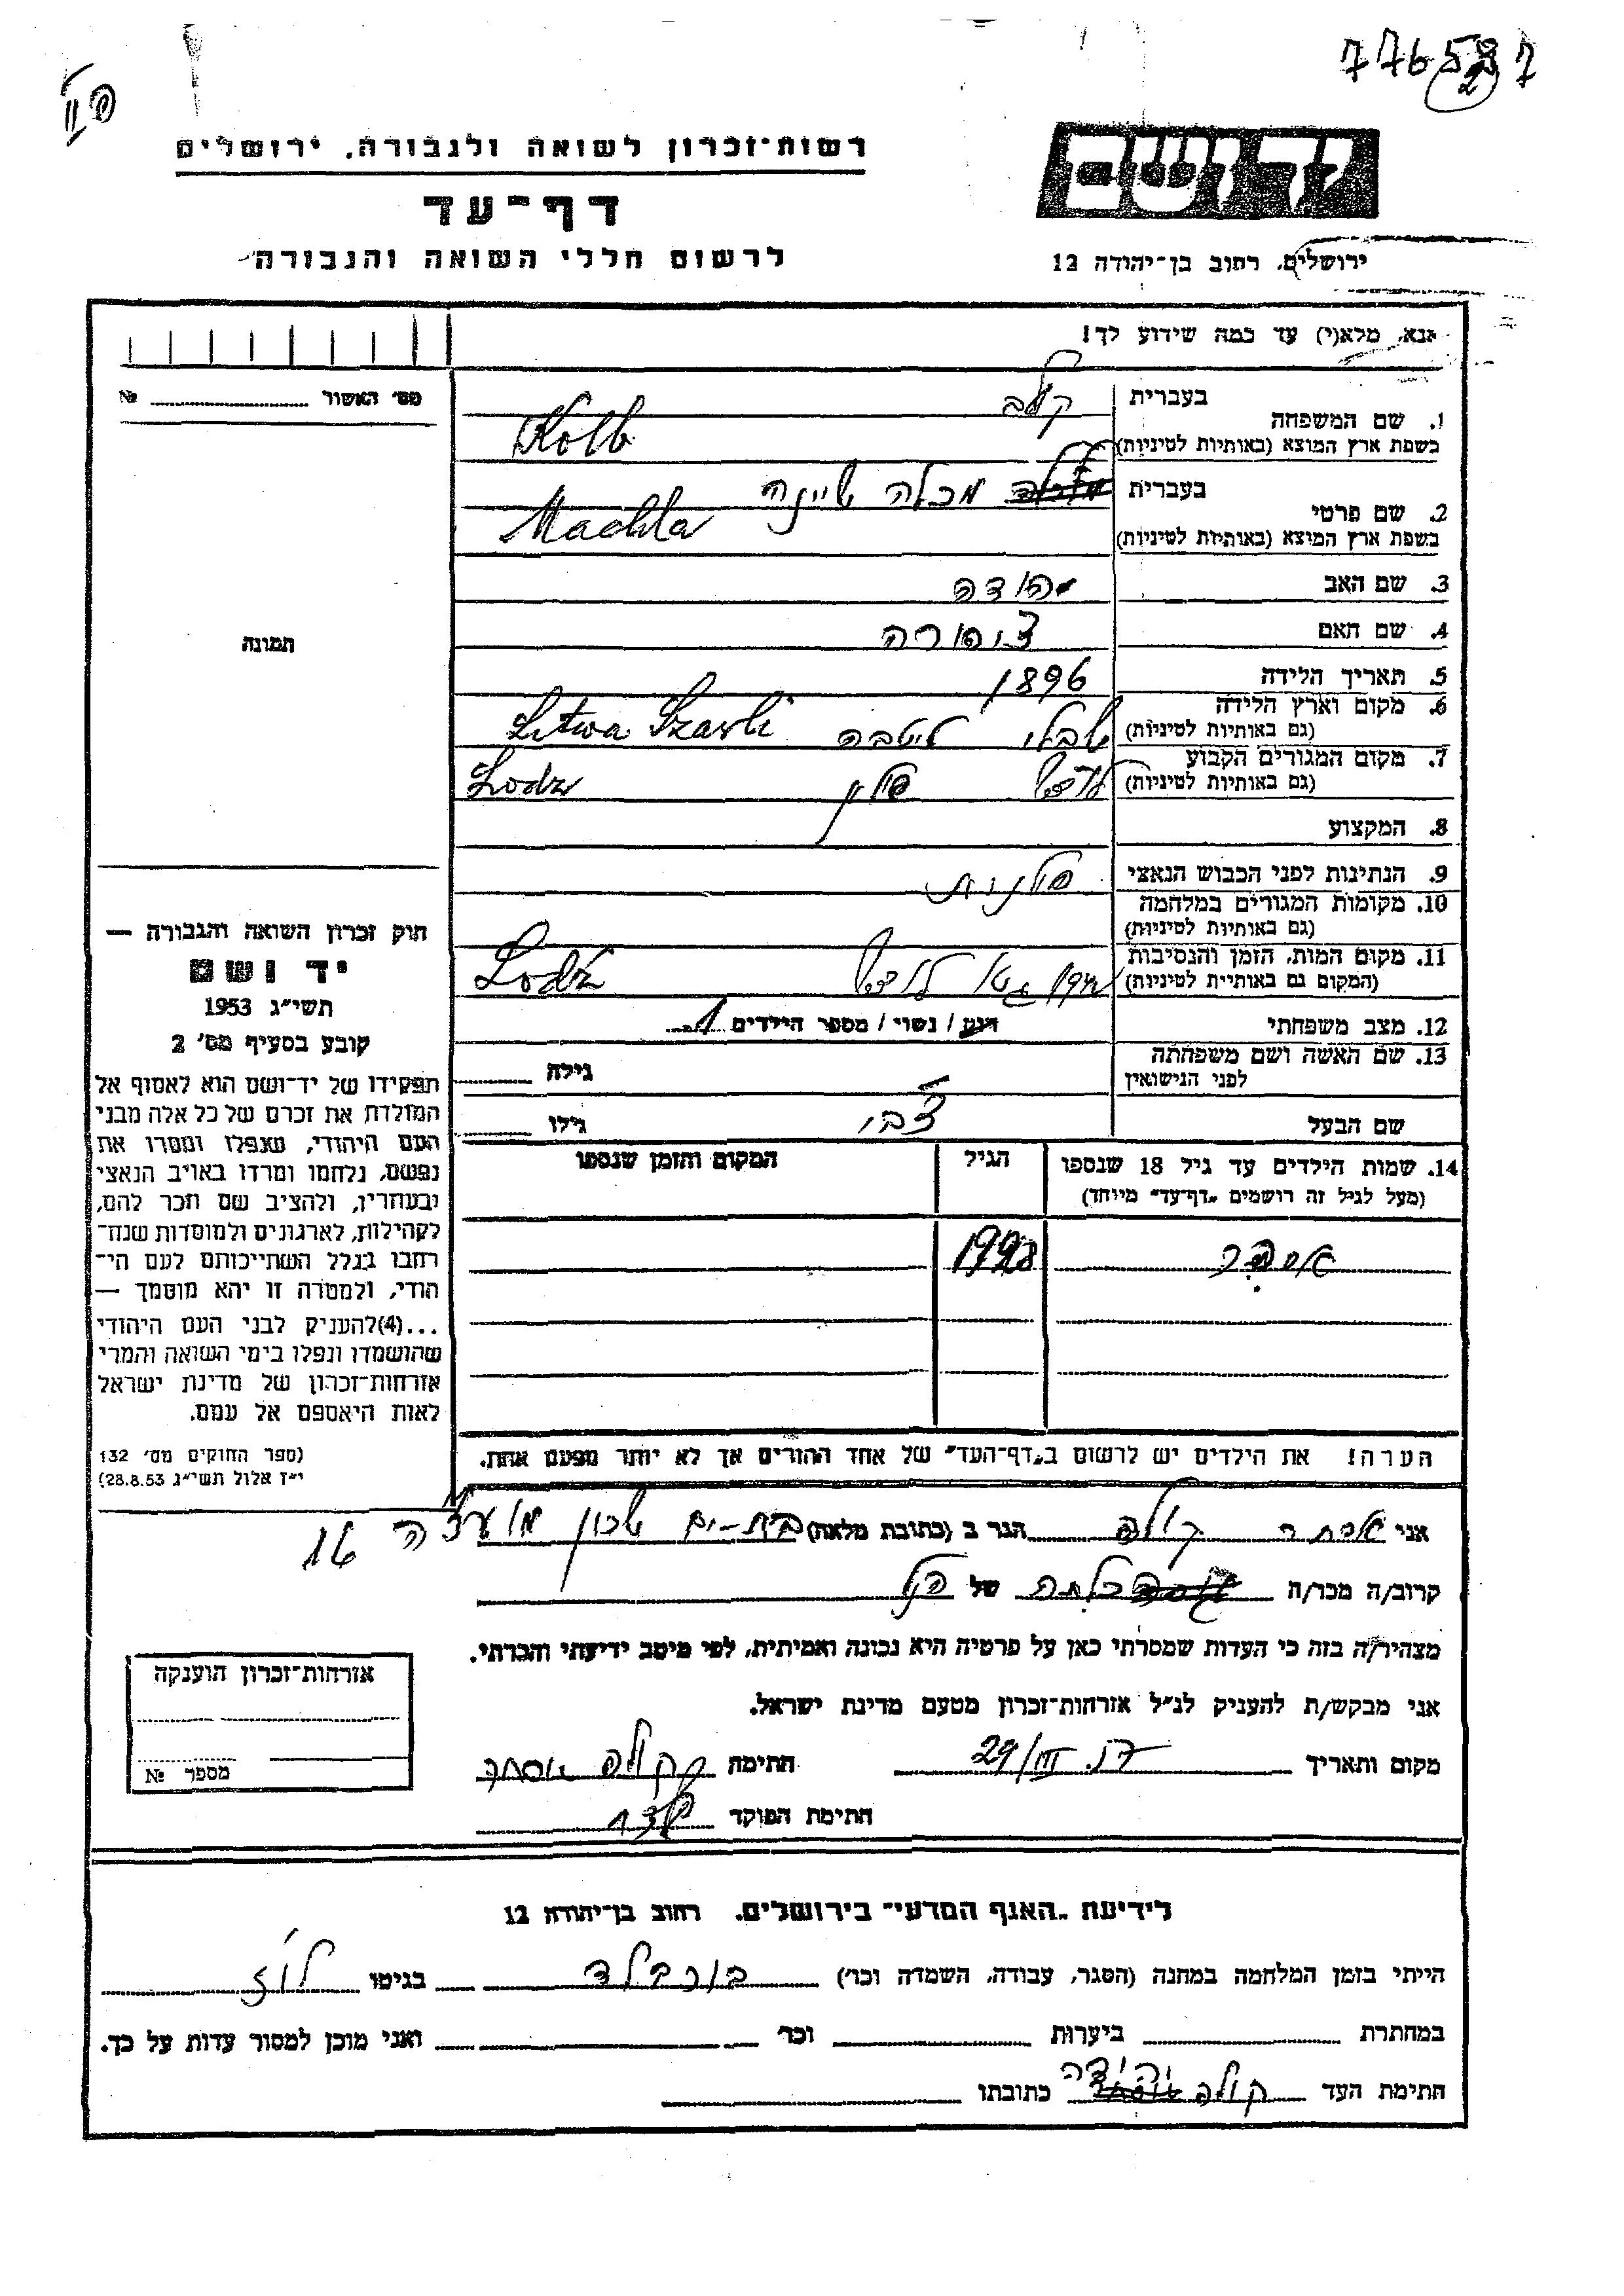 776587
2
רשות-זכרון לשואה ולגבורה, ירושלים
דף-עד
לרשום חללי השואה והגבורה
יד ושם
ירושלים, רחוב בן-יהודה 12
אנא, מלא(י) עד כמה שידוע לך!
מס' האשור № 
1. שם המשפחה
בעברית
קולב
בשפת ארץ המוצא (באותיות לטיניות)
Kolb
2. שם פרטי
בעברית
מכלה שיינה
בשפת ארץ המוצא (באותיות לטיניות)
Machla
3. שם האב
יהודה
4. שם האם
ציפורה
5. תאריך הלידה
1896
6. מקום וארץ הלידה
(גם באותיות לטיניות)
שבלי ליטבה Litwa Szavli
7. מקום המגורים הקבוע
(גם באותיות לטיניות)
לודז' פולין Lodz
8. המקצוע
9. הנתינות לפני הכבוש הנאצי
פולנית
10. מקומות המגורים במלחמה
(גם באותיות לטיניות)
11. מקום המות, הזמן והנסיבות
(המקום גם באותיית לטיניות)
גטו לודז' Lodz
12. מצב משפחתי
רווק / נשוי / מספר הילדים 1
13. שם האשה ושם משפחתה
לפני הנישואין
גילה
שם הבעל
צבי
גילו
14. שמות הילדים עד גיל 18 שנספו
(מעל לגיל זה רושמים "דף-עד" מיוחד)
הגיל
המקום והזמן שנספו
אסתר
הערה! את הילדים יש לרשום ב"דף-העד" של אחד ההורים אך לא יותר מפעם אחת.
תמונה
חוק זכרון השואה והגבורה —
יד ושם
תשי"ג 1953
קובע בסעיף מס' 2
תפקידו של יד-ושם הוא לאסוף אל
המולדת את זכרם של כל אלה מבני
העם היהודי, שנפלו ומסרו את
נפשם, נלחמו ומרדו באויב הנאצי
ובעוזריו, ולהציב שם וזכר להם,
לקהילות, לארגונים ולמוסדות שנח-
רבו בגלל השתייכותם לעם הי-
הודי, ולמטרה זו יהא מוסמך —
...(4)להעניק לבני העם היהודי
שהושמדו ונפלו בימי השואה והמרי
אזרחות-זכרון של מדינת ישראל
לאות היאספם אל עמם.
(ספר החוקים מס' 132
י"ז אלול תשי"ג 28.8.53)
אני אסתר קולב הגר ב (כתובת מלאה) בת-ים שכון מועצה 16
קרוב/ה מכר/ה כלתה של הנ"ל
מצהיר/ה בזה כי העדות שמסרתי כאן על פרטיה היא נכונה ואמיתית, לפי מיטב ידיעתי והכרתי.
אני מבקש/ת להעניק לנ"ל אזרחות-זכרון מטעם מדינת ישראל.
מקום ותאריך 29/III 57. חתימה קולב אסתר
חתימת הפוקד
אזרחות-זכרון הוענקה
מספר №
לידיעת "האגף המדעי" בירושלים. רחוב בן-יהודה 12
הייתי בזמן המלחמה במחנה (הסגר, עבודה, השמדה וכו') בוכנולד בגיטו לודז'
במחתרת ביערות וכו' ואני מוכן למסור עדות על כך.
חתימת העד קולב יהודה כתובתו